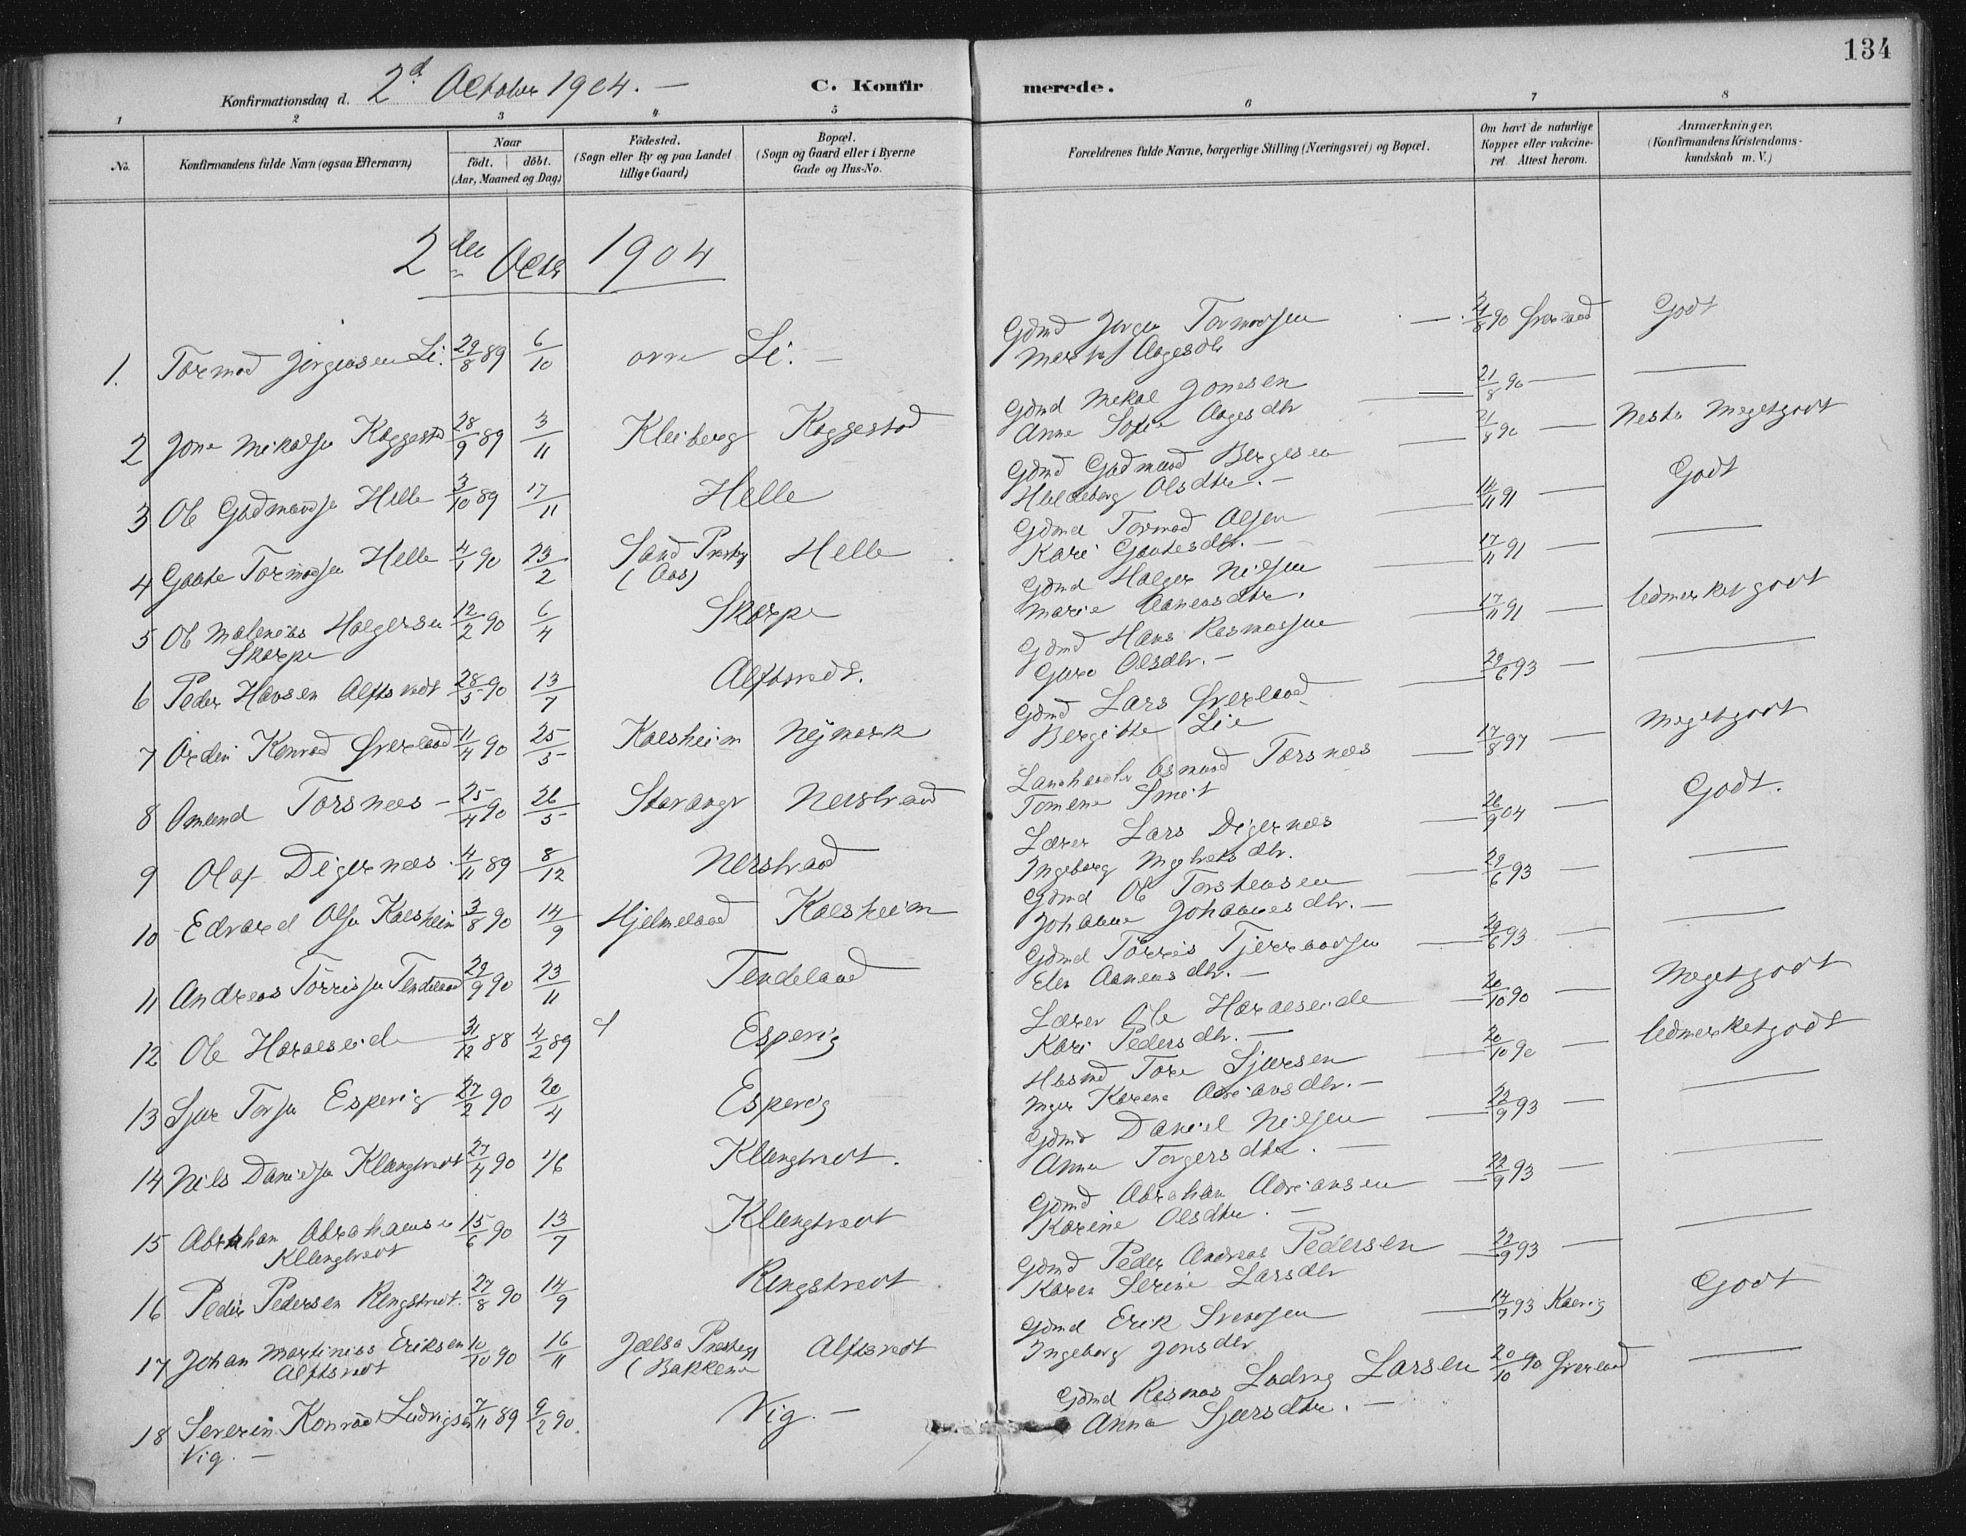 134
Konfirmationsdag d. 2d October 1904. —
C. Konfirmerede.
1 2 3 4 5 6 7 8
No.
Konfirmandens fulde Navn (ogsaa Efternavn)
Naar
födt. döbt.
(Aar, Maaned og Dag)
Födested.
(Sogn eller By og paa Landet tillige Gaard)
Bopæl.
(Sogn og Gaard eller i Byerne Gade og Hus-No.
Forældrenes fulde Navne, borgerlige Stilling (Næringsvei) og Bopæl.
Om havt de naturlige Kopper eller vakcineret. Attest herom.
Anmærkninger.
(Konfirmandens Kristendomskundskab m. V.)
2den Octr 1904
1. Tormod Jörgensen Li. 29/8 89 6/10 Li. — Gdmd Jörgen Tormodsen — 90 Godt
Aagesdtr
2 Jone Mikalsen Kaggestd 28/9 89 3/11 Kleiberg Kaggestad Gdmd Mikal Jonesen 21/8 90 — —
Anna Sofie Aagesdtr
3 Ole Gudmundsen Helle 3/10 89 17/11 Helle Gdmd Gudmund Bergesen 21/8 90 — Nesten Megetgodt
Olsdtr. —
4 Gaute Tormodsen Helle 4/1 90 23/2 Sand Prestg Helle Gdmd Tormod Olsen 91 — Godt
(Aas) Kari Gautesdtr. —
5 Ole Maleneus Holgersen 12/2 90 6/4 Skorpe Gdmd Holger Nilsen 17/11 91 — —
Skorpe Marie Aanensdtr.
6 Peder Hansen Alftsvedt 28/5 90 13/7 Alftsvedt. Gdmd Hans Rasmussen 17/11 91 — Udmerketgodt
Guro Olsdtr. —
7 Konrad 11/4 90 25/5 Kaesheim Nymark Gdmd Lars 29/6 93 — —
Bergitte Lie
8 Amund Torsnæs — 25/4 90 26/5 Stavanger Nerstrand Landhandler Asmund Torsnæs 17/8 97 — Megetgodt
Tomine Smit
9 Olaf Digernæs. 4/11 89 8/12 Nerstrand Lærer Lars Digernæs 26/9 04 — Godt.
Ingeborg
10 Edvard Olsen Kaesheim 3/8 90 14/9 Hjelmeland Kaesheim Gdmd Ole Torstensen 29/6 93 — —
Johanne Johannesdtr. —
11 Andreas Törrisen Tendeland 29/9 90 23/11 Tendeland Gdmd Törris Tjerandsen 29/6 93 — —
Elen Aanensdtr. —
12 Ole Haraeseide 31/12 88 4/2 89 Espevig Lærer Ole Haraeseide — 20/10 90 — Megetgodt
Kari Pedersdtr. —
13 Sjur Torsen Espevig 27/2 90 20/4 Espevig Husmd Tore Sjursen 20/10 90 — Udmerketgodt
Inger Karine Adriansdtr. —
14 Nils Danielsen Klungtvedt 27/4 90 1/6 Klungtvedt. Gdmd Daniel Nilsen 22/9 93 — —
Anna Torgersdtr. —
15 Abraham Abrahamsen 15/6 90 13/7 Klungtvedt Gdmd Abraham Adriansen — 22/9 93 — —
Klungtvedt Karine Olsdtr. —
16 Peder Pedersen Ringstvedt. 27/8 90 14/9 Ringstvedt Gdmd Peder Andreas Pedersen — 22/9 93 — —
Karen Serine Larsdtr
17 Johan Martinius Eriksen 10/10 90 16/11 Jælsa Presteg Alftsvedt Gdmd Erik Svendsen — 14/7 93 Godt
Alftsvedt (Bakken Ingeborg Jonsdtr
18 Severin Konrad Ludvigsen 7/11 89 9/2 90. Vig. — Gdmd Rasmus Ludvig Larsen 20/10 90 —
Vig. — Anna Sjursdtr. —